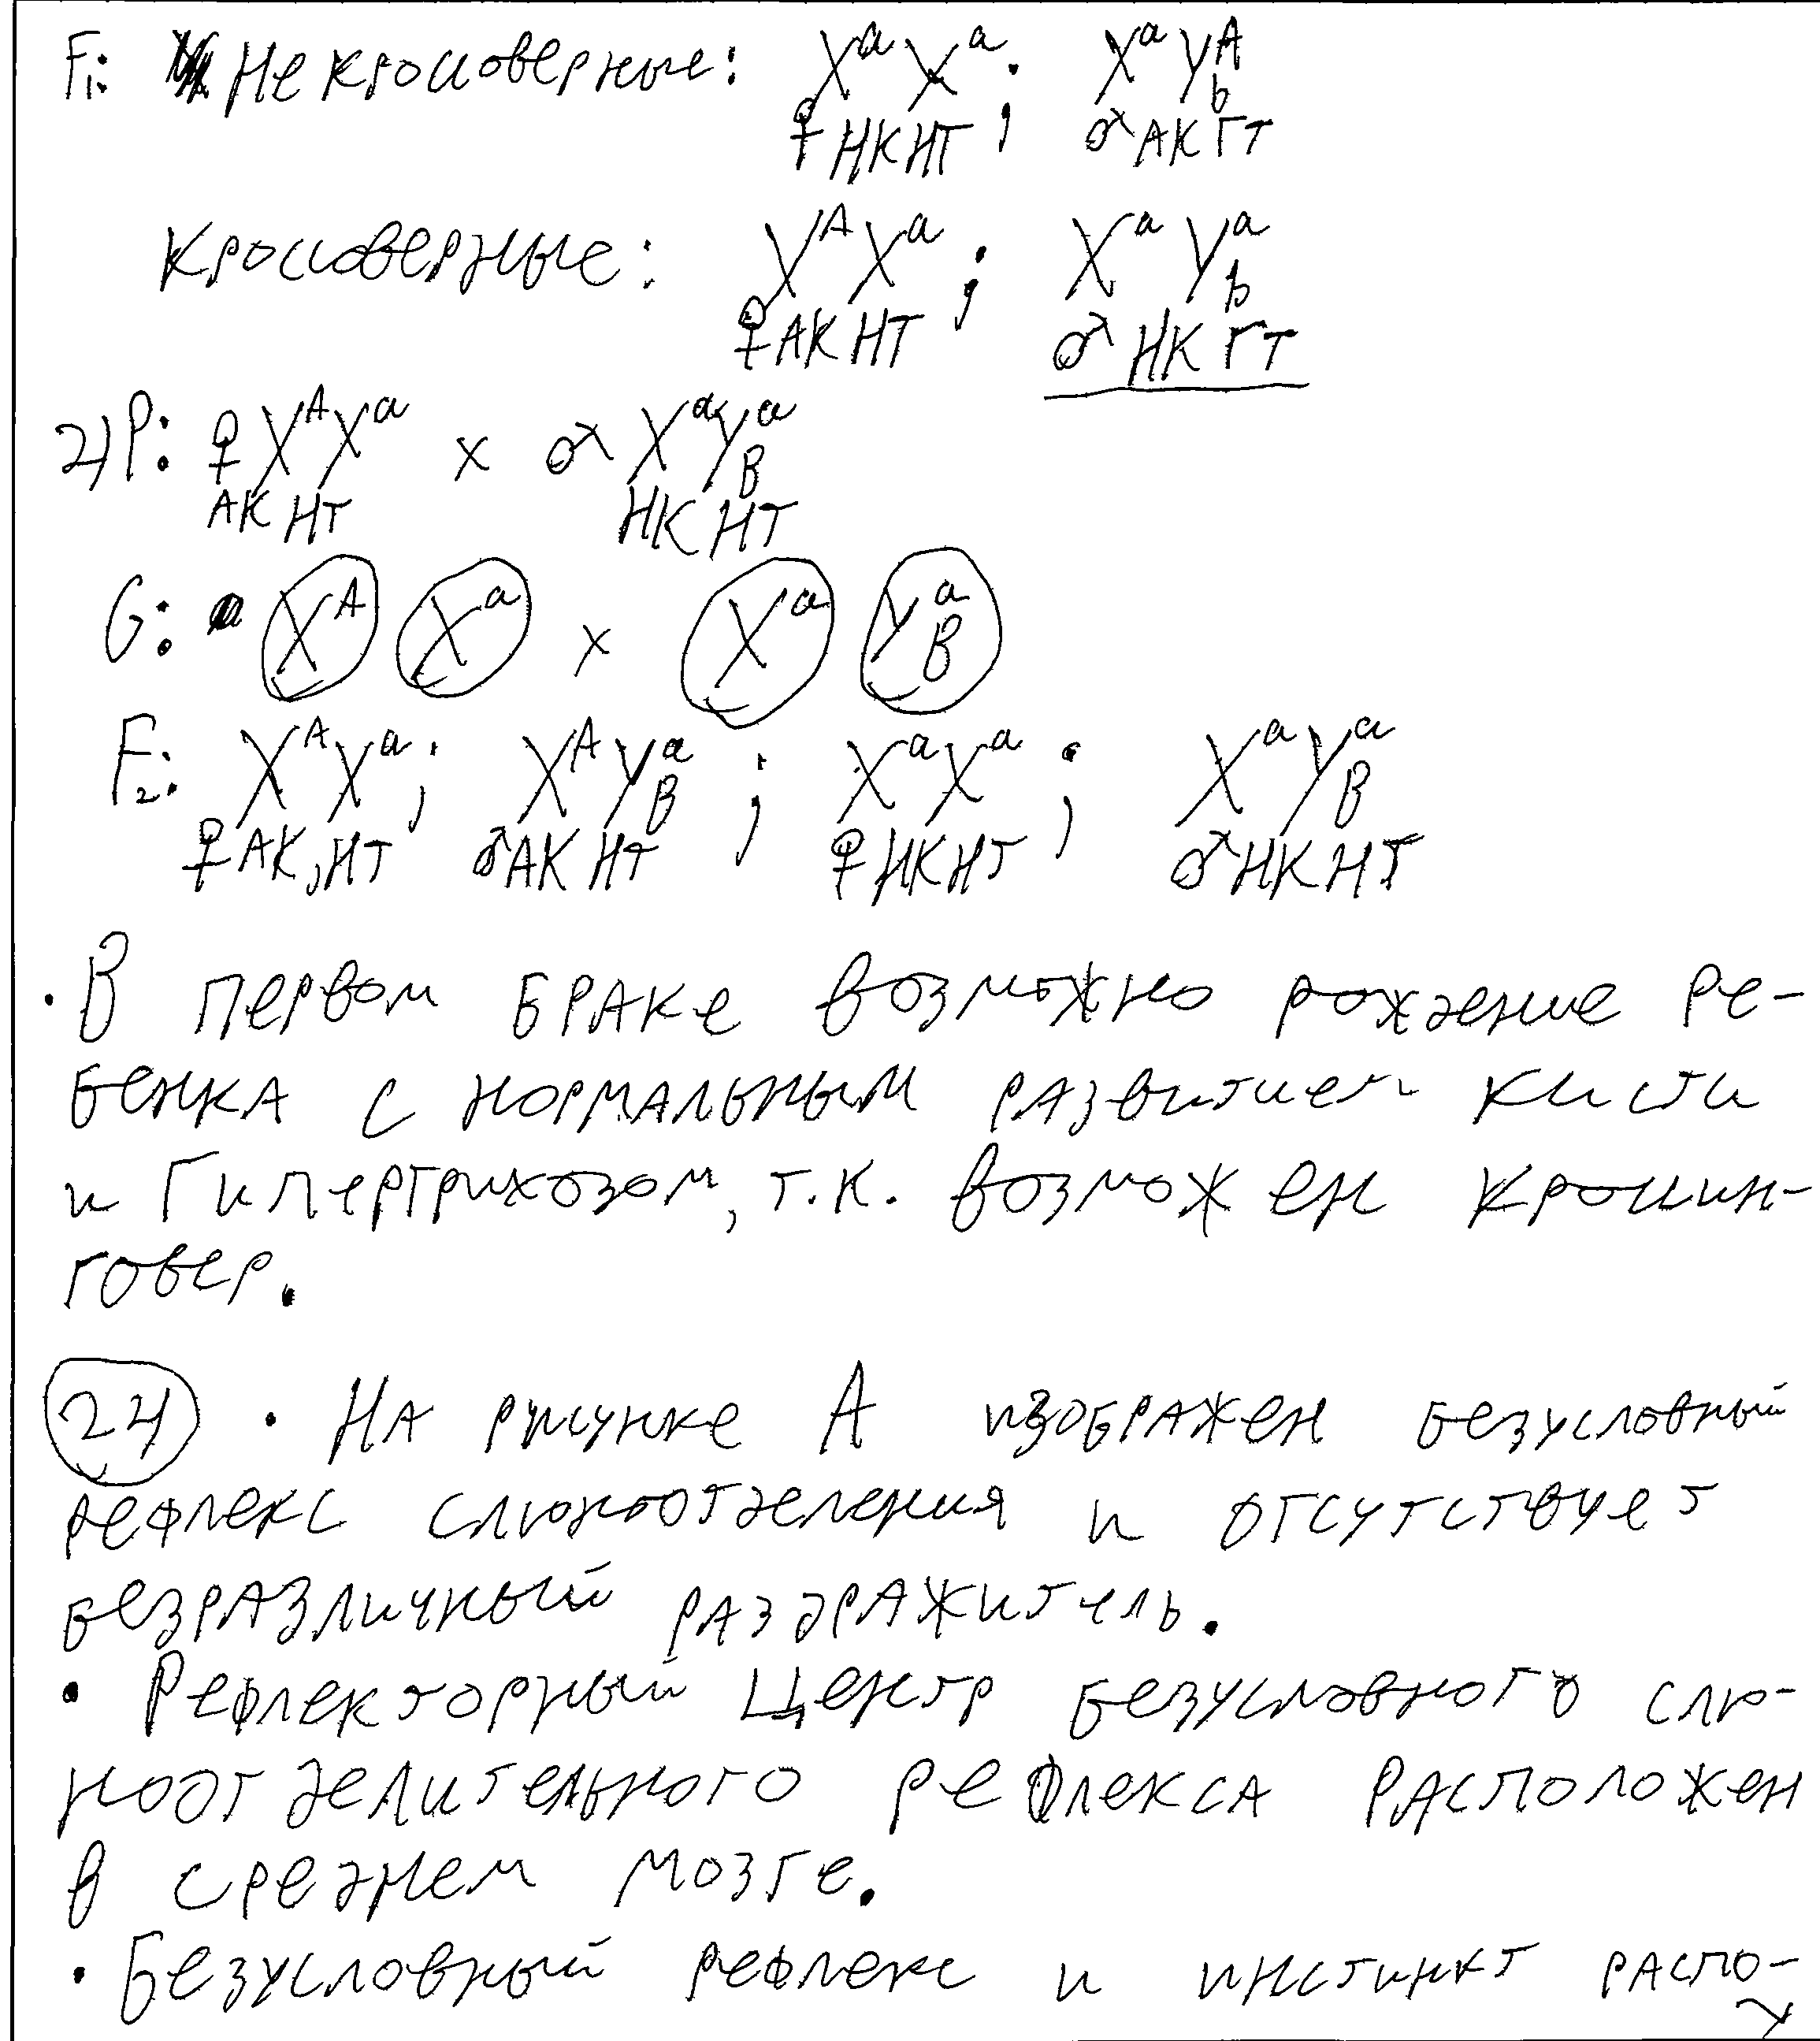 F₁: Некроссоверные: XᵃXᵃ; XᵃYᴬb
♀НКНТ; ♂АКГТ
Кроссоверные: XᴬXᵃ; XᵃYᵃb
♀АКНТ ♂НКГТ
2) P: ♀XᴬXᵃ x ♂XᵃYᵃB
АКНТ НКНТ
G: Xᴬ Xᵃ x Xᵃ YᵃB
F₂: XᴬXᵃ; XᴬYᵃB; XᵃXᵃ; XᵃYᵃB
♀АК,НТ ♂АКНТ ♀НКНТ ♂НКНТ
· В первом браке возможно рождение ре-
бенка с нормальным развитием кисти
и гипертрихозом, т.к. возможен кроссин-
говер.
24 · На рисунке А изображен безусловный
рефлекс слюноотделения и отсутствует
безразличный раздражитель.
· Рефлекторный центр безусловного слю-
ноотделительного рефлекса расположен
в среднем мозге.
· Безусловный рефлекс и инстинкт распо-